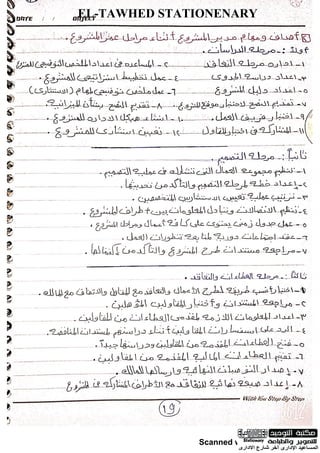 EL-TAWHED STATIONENARY
DATE: / / OBJECT
أهداف ومهام مدير المشروع أثناء مراحل عمر المشروع.
أولاً:- مرحلة الدراسات.
١- إدارة مرحلة التعاقد ٢- المساعدة فى إعداد الملخص التوصيفى للمشروع
٣- إعداد دراسة الجدوى ٤- عمل تخطيط استراتيجى للمشروع.
٥- إعداد دليل المشروع ٦- عمل ملخص توصيفى لمهام (الاستشارى)
٧- تقديم النصح لاختيار موقع المشروع ٨- تقديم النصح بشأن الميزانية.
٩- اختيار فريق العمل. ١٠- إنشاء هيكل الإدارة للمشروع.
١١- المشاركة فى اختيار المقاول ١٢- تعيين استشارى للمشروع.
ثانياً:- مرحلة التصميم.
١- تنظيم مجموعة العمال التى تشترك فى عملية التصميم.
٢- إعداد خطة لمرحلة التصميم والتأكد من تحديثها.
٣- ترتيب عملية تعيين الاستشاريين المتخصصين.
٤- تنظيم الاتصالات وتبادل المعلومات بين أطراف المشروع.
٥- عمل جدول زمنى يحتوى على كافة أعمال ومراحل المشروع.
٦- عقد اجتماعات دورية لمتابعة تطورات العمل.
٧- مراجعة مستندات طرح المشروع والتأكد من اكتمالها.
ثالثاً:- مرحلة العطاءات والتعاقد.
١- اختيار أنسب طريقة لطرح الأعمال والتعاقد مع المقاول والاتفاق مع المالك.
٢- مراجعة المستندات واختيار المقاولين المؤهلين.
٣- إعداد المعلومات اللازمة لمقدمى العطاءات من المقاولين.
٤- الرد على استفسارات المقاولين أثناء دراستهم لمستندات المناقصة.
٥- فتح العطاءات المقدمة من المقاولين ودراستها جيداً.
٦- تقييم العطاءات المالية المقدمة من المقاولين.
٧- إعداد التوصيات النهائية وإرسالها للمالك.
٨- إعداد صيغة نهائية للتعاقد مع الأطراف المشاركة فى المشروع
With You Step By Step
١٩
مكتبة التوحيد
للتصوير والطباعة
المساعيد الإدارى آخر شارع الإدارى
Scanned